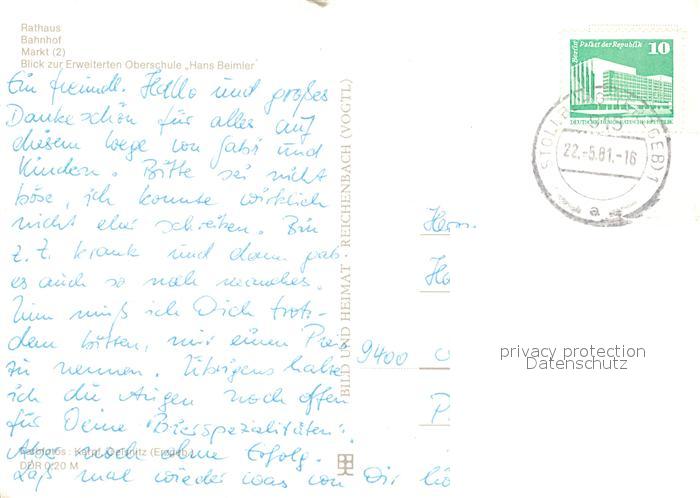 Rathaus
Bahnhof
Markt (2)
Blick zur Erweiterten Oberschule „Hans Beimler"
Ein freundl. Hallo und großes
Dankeschön für alles auf
diesem Wege von Gabi und
Kindern. Bitte sei nicht
böse, ich konnte wirklich
nicht eher schreiben. Bin
z. Z. krank und dann gab
es auch so noch manches.
Nun muß ich Dich trotz-
dem bitten, mir einen Preis
zu nennen. Übrigens halte
ich die Augen noch offen
für Deine "Bierspezialitäten".
Aber noch ohne Erfolg.
Laß mal wieder was von Dir hö
Farbfotos: Oelsnitz (Erzgeb.)
DDR 0,20 M
BILD UND HEIMAT REICHENBACH (VOGTL)
Berlin Palast der Republik
10
DEUTSCHE DEMOKRATISCHE REPUBLIK
22.-5.81.-16
a
Herrn
9400
privacy protection
Datenschutz